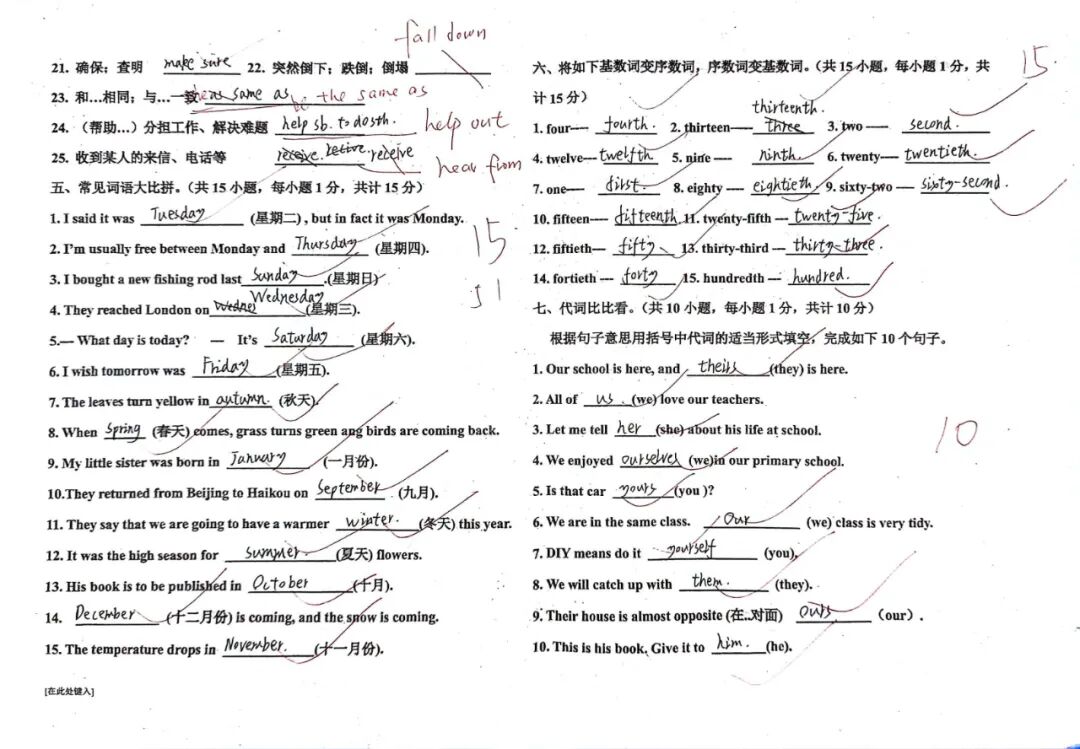 fall down
21. 确保；查明 make sure 22. 突然倒下；跌倒；倒塌
23. 和…相同；与…一致 as same as be the same as
24. （帮助…）分担工作、解决难题 help sb. to do sth. help out
25. 收到某人的来信、电话等 receive. receive hear from
五、常见词语大比拼。（共 15 小题，每小题 1 分，共计 15 分）
1. I said it was Tuesday (星期二) , but in fact it was Monday.
2. I'm usually free between Monday and Thursday (星期四).
15
3. I bought a new fishing rod last Sunday .(星期日)
51
Wednesday
4. They reached London on Wedne (星期三).
5.— What day is today? — It's Saturday (星期六).
6. I wish tomorrow was Friday (星期五).
7. The leaves turn yellow in autumn. (秋天).
8. When spring (春天) comes, grass turns green ang birds are coming back.
9. My little sister was born in January (一月份).
10.They returned from Beijing to Haikou on September (九月).
11. They say that we are going to have a warmer winter. (冬天) this year.
12. It was the high season for summer. (夏天) flowers.
13. His book is to be published in October (十月).
14. December (十二月份) is coming, and the snow is coming.
15. The temperature drops in November. (十一月份).
[在此处键入]
六、将如下基数词变序数词，序数词变基数词。（共 15 小题，每小题 1 分，共
15
计 15 分）
thirteenth.
1. four— fourth. 2. thirteen— three 3. two — second.
4. twelve— twelfth 5. nine — ninth 6. twenty— twentieth.
7. one— first. 8. eighty — eightieth. 9. sixty-two — sixty-second.
10. fifteen— fifteenth 11. twenty-fifth — twenty-five.
12. fiftieth— fifty 13. thirty-third — thirty-three.
14. fortieth — forty 15. hundredth — hundred.
七、代词比比看。（共 10 小题，每小题 1 分，共计 10 分）
根据句子意思用括号中代词的适当形式填空，完成如下 10 个句子。
1. Our school is here, and theirs (they) is here.
2. All of us. (we) love our teachers.
3. Let me tell her (she) about his life at school.
10
4. We enjoyed ourselves (we)in our primary school.
5. Is that car yours (you )?
6. We are in the same class. Our (we) class is very tidy.
7. DIY means do it yourself (you).
8. We will catch up with them. (they).
9. Their house is almost opposite (在..对面) ours. （our）.
10. This is his book. Give it to him. (he).